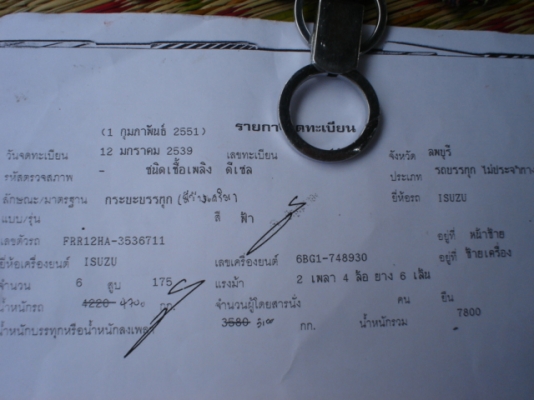 (1 กุมภาพันธ์ 2551) รายการจดทะเบียน
วันจดทะเบียน 12 มกราคม 2539 เลขทะเบียน จังหวัด ลพบุรี
รหัสตรวจสภาพ - ชนิดเชื้อเพลิง ดีเซล ประเภท รถบรรทุก ไม่ประจำทาง
ลักษณะ/มาตรฐาน กระบะบรรทุก ยี่ห้อรถ ISUZU
แบบ/รุ่น สี ฟ้า
เลขตัวรถ FRR12HA-3536711 อยู่ที่ หน้าซ้าย
ยี่ห้อเครื่องยนต์ ISUZU เลขเครื่องยนต์ 6BG1-748930 อยู่ที่ ซ้ายเครื่อง
จำนวน 6 สูบ 175 แรงม้า 2 เพลา 4 ล้อ ยาง 6 เส้น
น้ำหนักรถ 4220 กก. จำนวนผู้โดยสารนั่ง คน ยืน
น้ำหนักบรรทุกหรือน้ำหนักลงเพลา 3580 กก. น้ำหนักรวม 7800